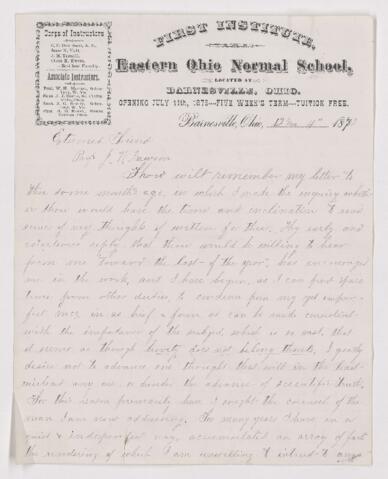 FIRST INSTITUTE,
Eastern Ohio Normal School,
LOCATED AT
BARNESVILLE, OHIO.
OPENING JULY 11th, 1878—FIVE WEEK'S TERM—TUITION FREE.
Corps of Instructors
Associate Instructors.
Barnesville, Ohio, 12 mo 4th 187
Esteemed Friend
Prof J.
Thou wilt remember my letter to
thee some months ago, in which I made the enquiry whether
or thou would have the time and inclination to read
some of my thoughts if written for thee. Thy early and
courteous reply that thou would be willing to hear
from me "toward the last of the year", has encouraged
me in the work, and I have begun, as I can find spare
time from other duties, to condense from my yet imper-
fect in as brief a form as can be made consistent
with the importance of the subject, which is so vast, that
it seems as though brevity does not belong thereto. I greatly
desire not to advance one thought that will in the least
mislead any one, or hinder the advance of scientific truth.
For this reason primarily have I sought the counsel of the
man I am now addressing. For many years I have, in a
quiet & independent way, accumulated an array of facts
the rendering of which I am unwilling to intrust to any